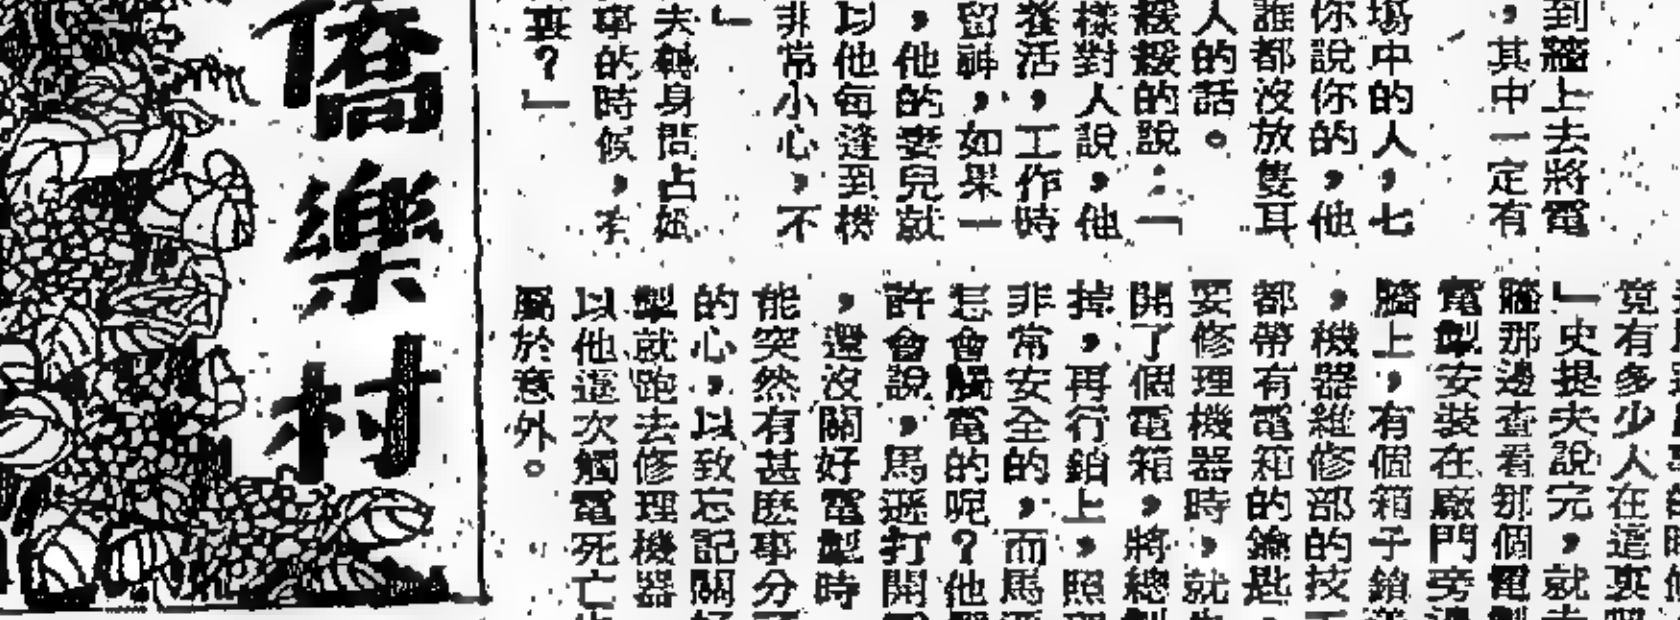 到牆上去將電
，其中一定有
場中的人，七
你說你的，他
誰都沒放隻耳
人的話。
緩緩的說：「
樣對人說，他
養活，工作時
留神，如果一
，他的妻兒就
以他每逢到機
非常小心，不
」
夫轉身問占姬
事的時候，有
裏？」
竟有多少人在這裏
」史提夫說完，就去
牆那邊查看那個電掣
電掣安裝在廠門旁邊
牆上，有個箱子鎖
，機器維修部的技
都帶有電箱的鑰匙，
要修理機器時，就
開了個電箱，將總掣
掉，再行鎖上，照理
非常安全的，而馬
怎會觸電的呢？他
許會說，馬遜打開
，還沒關好電掣時
能突然有甚麼事分
的心，以致忘記關好
掣就跑去修理機器
以他這次觸電死亡
屬於意外。
僑樂村